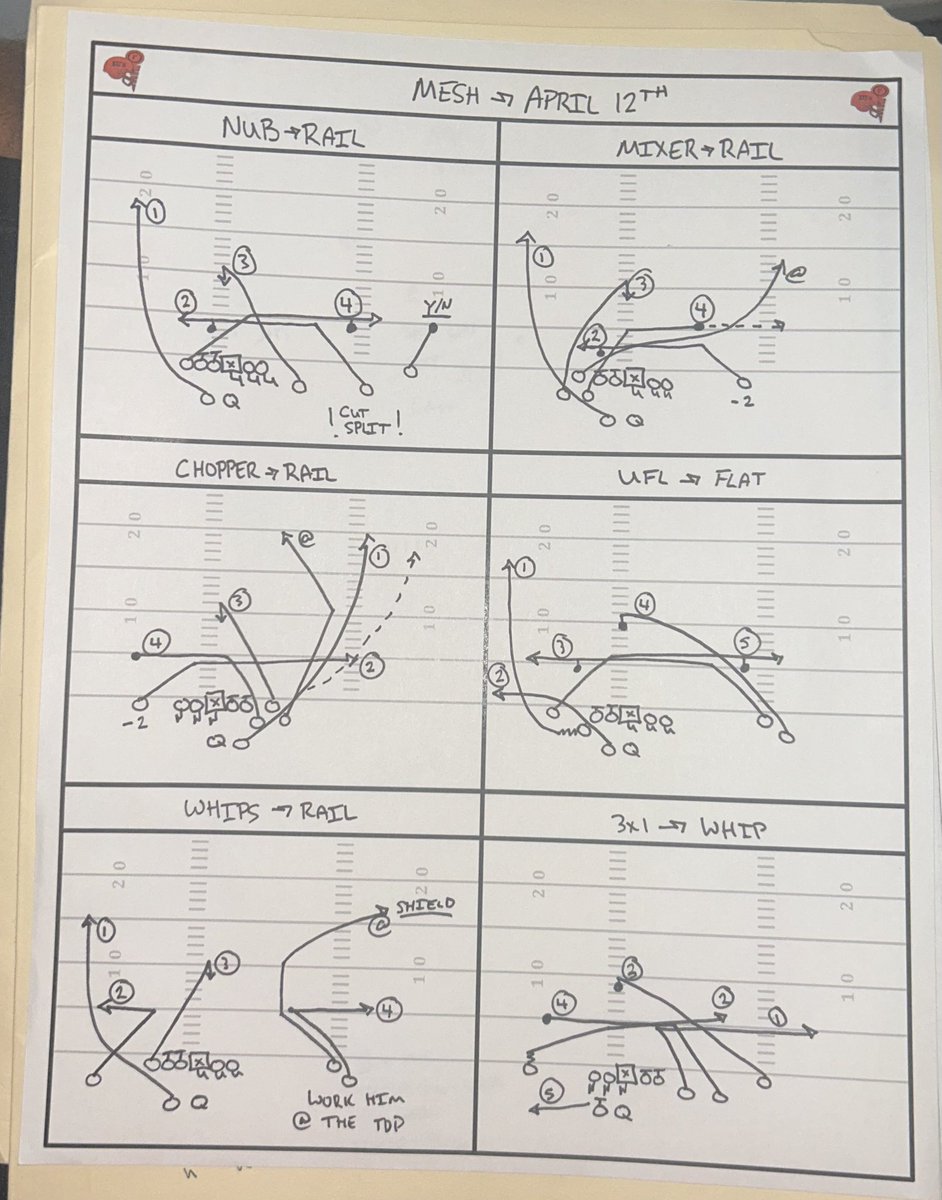 MESH → APRIL 12TH
NUB → RAIL
20
20
10
10
1
3
2
4
Y/N
X
Q
! CUT SPLIT !
MIXER → RAIL
20
20
10
10
1
3
@
4
2
X
-2
Q
CHOPPER → RAIL
20
20
10
10
@
1
3
4
2
-2
X
Q
UFL → FLAT
20
20
10
10
1
4
3
5
2
X
Q
WHIPS → RAIL
20
20
10
10
SHIELD
@
1
3
2
4
X
Q
WORK HIM
@ THE TOP
3x1 → WHIP
20
20
10
10
3
4
2
1
X
5
Q